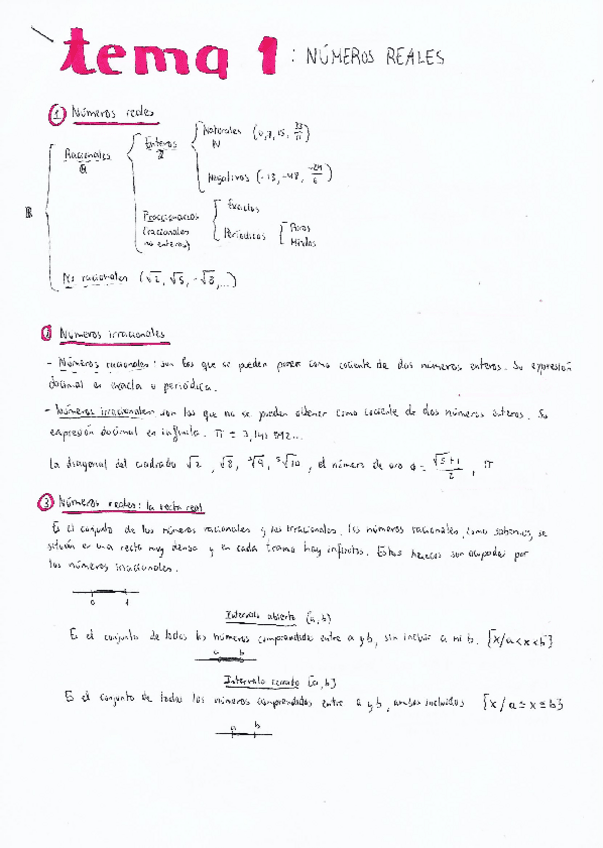 tema 1 : NÚMEROS REALES
1 Números reales
R
Racionales Q
Enteros Z
Naturales N (0, 7, 15, 33/11)
Negativos (-13, -48, -24/6)
Fraccionarios (racionales no enteros)
Exactos
Periódicos
Puros
Mixtos
No racionales (√2, √5, -√3, ...)
2 Números irracionales
- Números racionales: son los que se pueden poner como cociente de dos números enteros. Su expresión
decimal es exacta o periódica.
- Números irracionales: son los que no se pueden obtener como cociente de dos números enteros. Su
expresión decimal es infinita. π = 3,141592...
La diagonal del cuadrado √2, √8, ³√9, ⁵√10, el número de oro Φ = (√5+1)/2, π
3 Números reales: la recta real
Es el conjunto de los números racionales y los irracionales. Los números racionales, como sabemos, se
sitúan en una recta muy densa y en cada tramo hay infinitos. Estos huecos son ocupados por
los números irracionales.
0 1
Intervalo abierto (a, b)
Es el conjunto de todos los números comprendidos entre a y b, sin incluir a ni b. {x/a<x<b}
a b
Intervalo cerrado [a, b]
Es el conjunto de todos los números comprendidos entre a y b, ambos incluidos {x/a≤x≤b}
a b